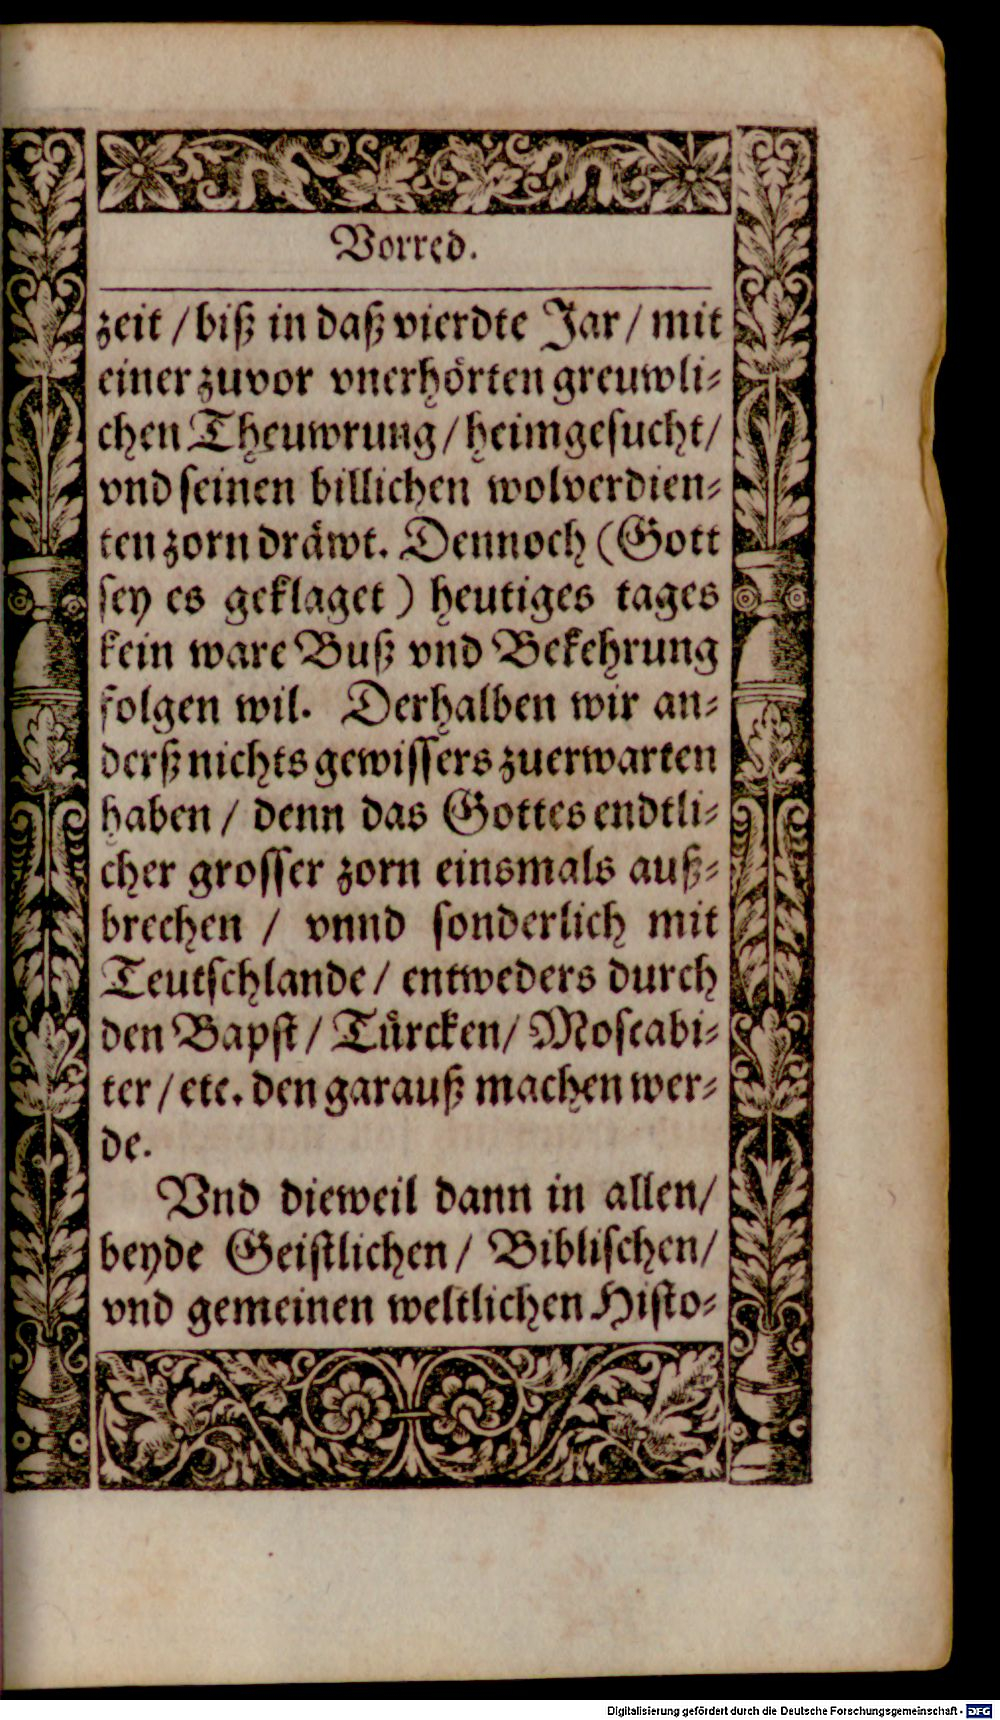 Vorred.
zeit / biß in daß vierdte Jar / mit
einer zuvor vnerhörten greuwli⸗
chen Theuwrung / heimgesucht /
vnd seinen billichen wolverdien⸗
ten zorn dräwt. Dennoch (Gott
sey es geklaget) heutiges tages
kein ware Buß vnd Bekehrung
folgen wil. Derhalben wir an⸗
derß nichts gewissers zuerwarten
haben / denn das Gottes endtli⸗
cher grosser zorn einsmals auß⸗
brechen / vnnd sonderlich mit
Teutschlande / entweders durch
den Bapst / Türcken / Moscabi⸗
ter / etc. den garauß machen wer⸗
de.
Vnd dieweil dann in allen /
beyde Geistlichen / Biblischen /
vnd gemeinen weltlichen Histo⸗
Digitalisierung gefördert durch die Deutsche Forschungsgemeinschaft - DFG